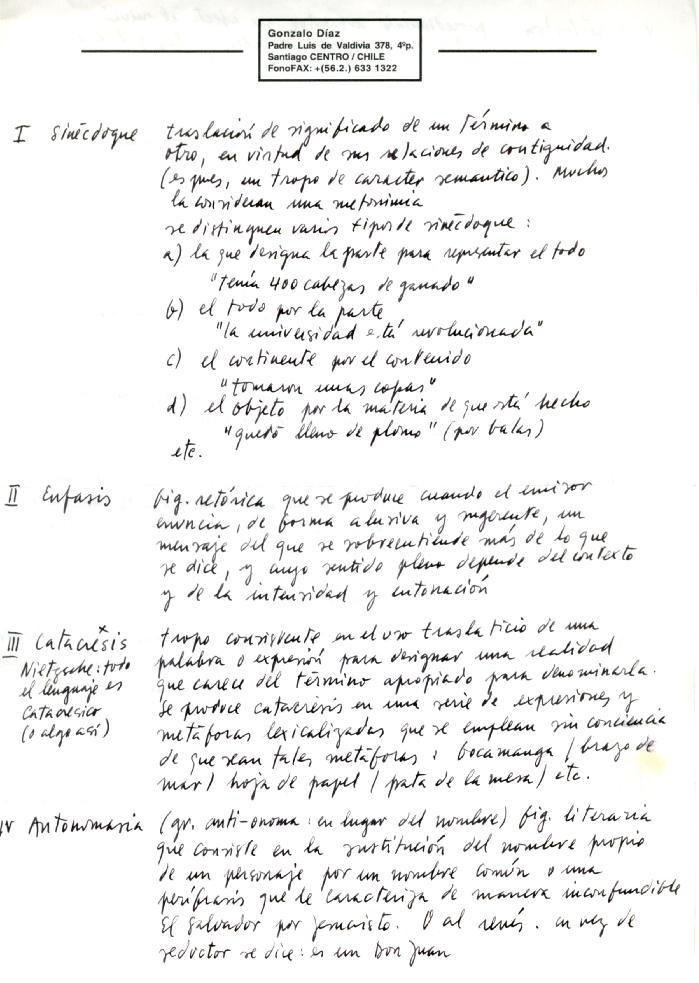 Gonzalo Díaz
Padre Luis de Valdivia 378, 4ºp.
Santiago CENTRO / CHILE
FonoFAX: +(56.2.) 633 1322
I Sinécdoque traslación de significado de un término a
otro, en virtud de sus relaciones de contiguidad.
(es pues, un tropo de caracter semantico). Muchos
la consideran una metonimia
se distinguen varios tipos de sinécdoque:
a) la que designa la parte para representar el todo
"tenía 400 cabezas de ganado"
b) el todo por la parte
"la universidad está revolucionada"
c) el continente por el contenido
"tomaron unas copas"
d) el objeto por la materia de que está hecho
"quedó lleno de plomo" (por balas)
etc.
II Enfasis fig. retórica que se produce cuando el emisor
enuncia, de forma alusiva y sugerente, un
mensaje del que se sobreentiende más de lo que
se dice, y cuyo sentido pleno depende del contexto
y de la intensidad y entonación
III Catacresis x tropo consistente en el uso traslaticio de una
Nietzsche: todo palabra o expresión para designar una realidad
el lenguaje es que carece del término apropiado para denominarla.
catacresico Se produce catacresis en una serie de expresiones y
(o algo así) metáforas lexicalizadas que se emplean sin conciencia
de que sean tales metáforas: bocamanga / brazo de
mar / hoja de papel / pata de la mesa / etc.
IV Antonomasia (gr. anti-onoma: en lugar del nombre) fig. literaria
que consiste en la sustitución del nombre propio
de un personaje por un nombre común o una
perífrasis que le caracteriza de manera inconfundible
El Salvador por Jesucristo. O al revés. en vez de
seductor se dice: es un Don Juan